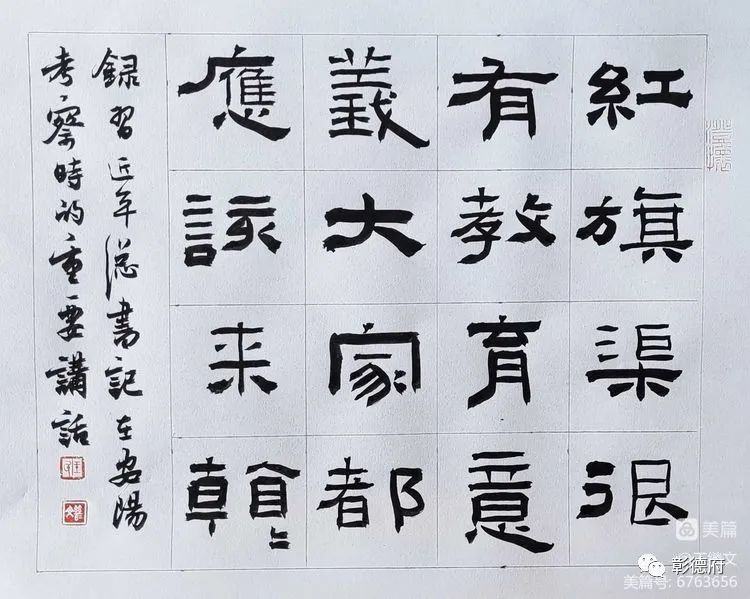 紅旗渠很
有教育意
義大家都
應該来䀍〻
録習近平總書記在安陽
考察時的重要講話
美篇
彰德府
美篇号: 6763656